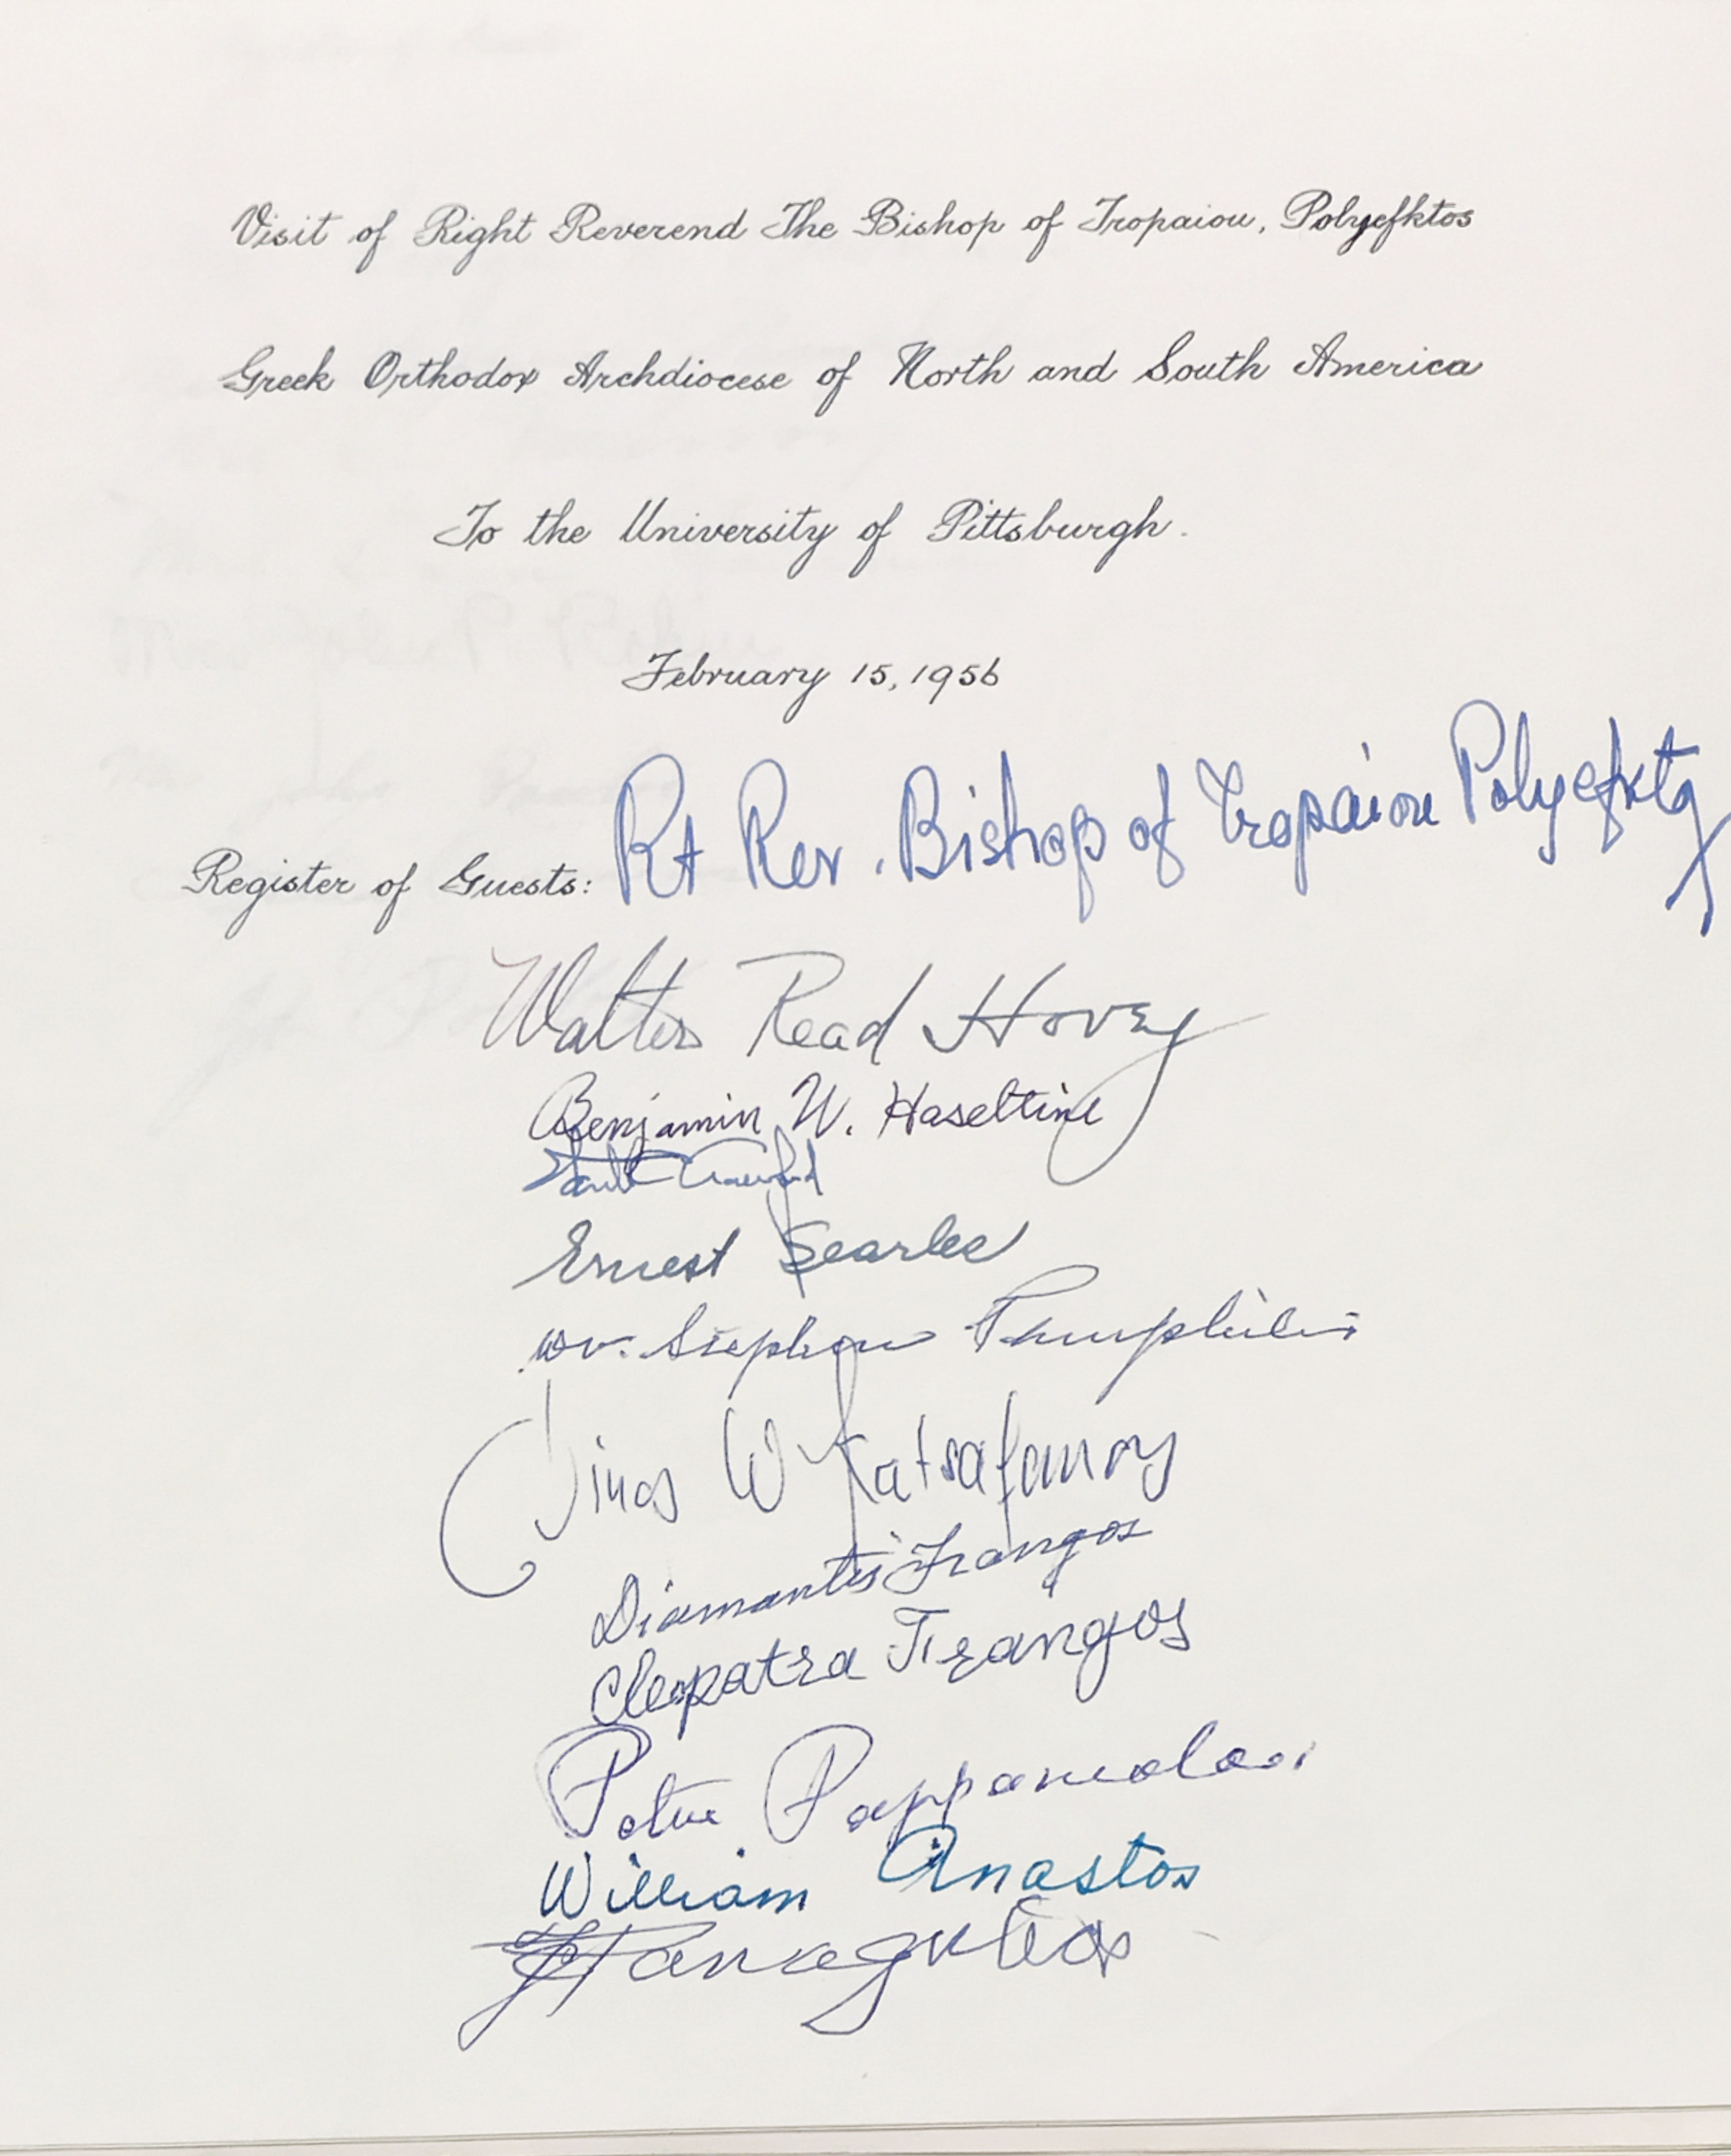 Visit of Right Reverend The Bishop of Tropaiou, Polyefktos
Greek Orthodox Archdiocese of North and South America
To the University of Pittsburgh.
February 15, 1956
Register of Guests: Rt Rev. Bishop of Tropaiou Polyefktos
Walter Read Hovey
Benjamin W. Haseltine
Crawford
Ernest Searles
Stephen
W
Diamantis Frangos
Cleopatra Frangos
Peter
William Anastos